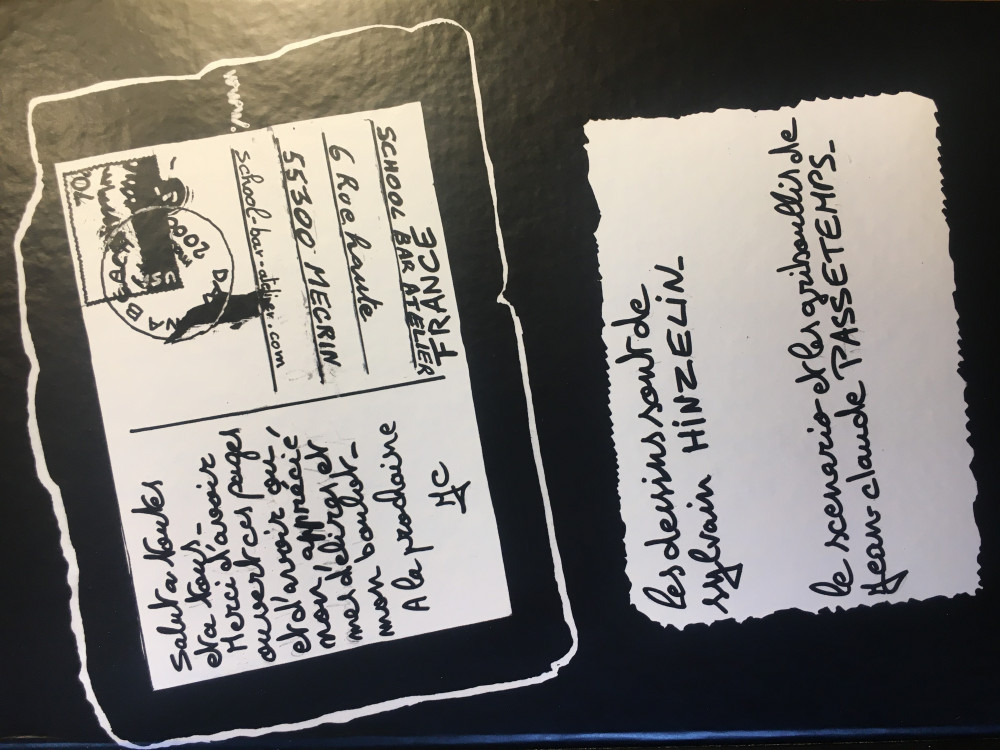 Salut a toutes
et a tous -
Merci d'avoir
ouvert ces pages
et d'avoir oui,
apprécié
mon
mes délires et
mon boulot -
A la prochaine
JC
70
2000
www.
school-bar-atelier.com
55300 MECRIN
6 Rue haute
SCHOOL BAR ATELIER
FRANCE
les dessins sont de
sylvain HINZELIN_
le scenario et les gribouillis de
jean-claude PASSETEMPS_